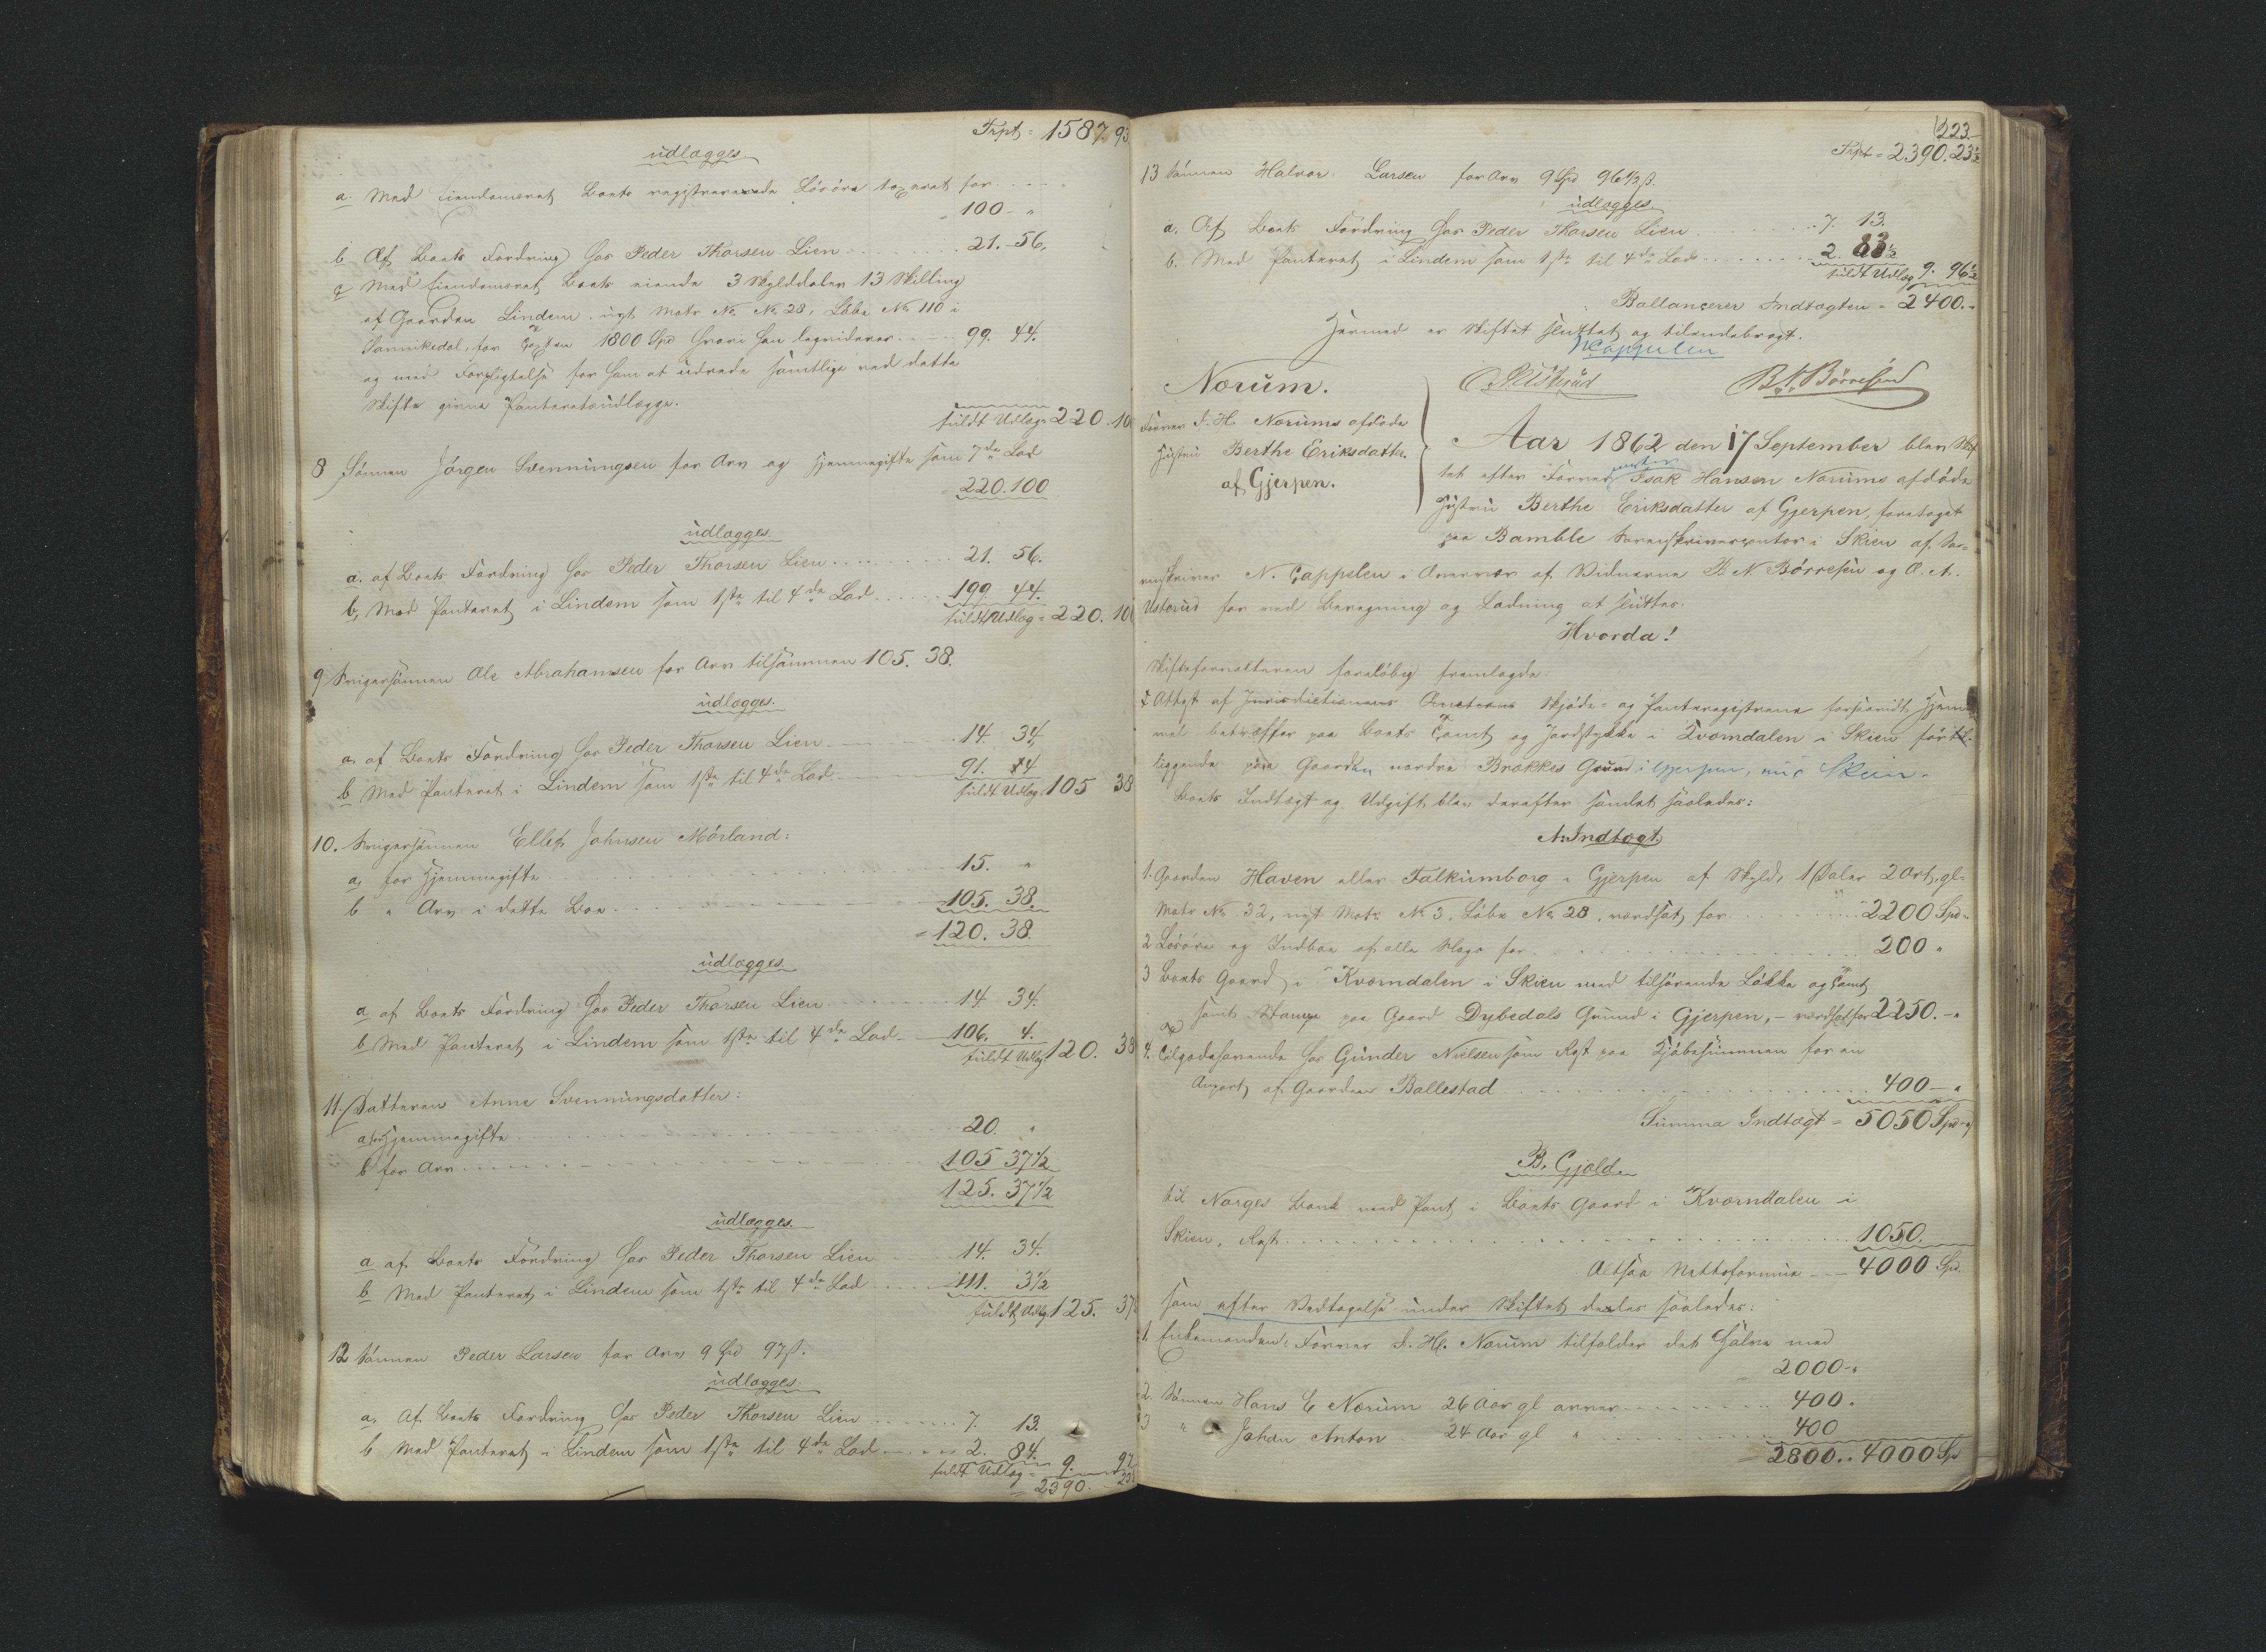 Trpt = 1587. 93
udlægges
a. Med Eiendomsret Boets registrerede Løsøre taxeret for
100 "
b Af Boets Fordring hos Peder Thorsen Lien 21. 56.
c Med Eiendomsret Boets eiende 3 Skylddaler 13 Skilling
af Gaarden Lindem nyt Matr No 28, Løbe No 110 i
Sannikedal, for Taxten 1800 Spd hvori han beqviderer 99. 44.
og med Forpligtelse for ham at udrede samtlige ved dette
Skifte givne Panteretsudlægge.
fuldt Udlæg = 220. 100
8 Sønnen Jørgen Svenningsen for Arv og Hjemmegifte som 7de Lod
= 220. 100
udlægges.
a. af Boets Fordring hos Peder Thorsen Lien 21. 56.
b, Med Panteret i Lindem som 1ste til 4de Lod 199. 44.
fuldt Udlæg = 220. 100
9 Svigersønnen Ole Abrahamsen for Arv tilsammen 105. 38.
udlægges.
a. af Boets Fordring hos Peder Thorsen Lien 14. 34,
b Med Panteret i Lindem som 1ste til 4de Lod 91. 4
fuldt Udlæg 105 38
10. Svigersønnen Ellef Johnsen Mørland:
a, for Hjemmegifte 15. "
b " Arv i dette Boe 105. 38.
= 120. 38.
udlægges
a af Boets Fordring hos Peder Thorsen Lien 14 34.
b Med Panteret i Lindem som 1ste til 4de Lod 106. 4.
fuldt Udlæg 120. 38
11. Datteren Anne Svenningsdatter:
a for Hjemmegifte 20. "
b for Arv 105 37½
125. 37½
udlægges.
a af Boets Fordring hos Peder Thorsen Lien 14. 34.
b Med Panteret i Lindem som 1ste til 4de Lod 111. 3½
fuldt Udlæg 125. 37
12 Sønnen Peder Larsen for Arv 9 Spd 97 ß.
udlægges.
a, Af Boets Fordring hos Peder Thorsen Lien 7. 13.
b Med Panteret i Lindem som 1ste til 4de Lod 2. 84.
fuldt Udlæg = 9. 97
= 2390. 23
223.
Trpt = 2390. 23½
13 Sønnen Halvor Larsen for Arv 9 Spd 96½ ß.
udlægges.
a. Af Boets Fordring hos Peder Thorsen Lien 7. 13.
b. Med Panteret i Lindem som 1ste til 4de Lod 2. 83½
fuldt Udlæg 9. 96½
Ballancerer Indtægten = 2400. "
Hermed er Skiftet sluttet og tilendebragt.
NCappelen
O A Usterud B. N. Børresen
Norum.
Farver I. H. Norums afdøde
Hustru Berthe Eriksdatter
af Gjerpen.
Aar 1862 den 17 September blev Skif
tet efter Farver Isak Hansen Norums afdøde
Hustru Berthe Eriksdatter af Gjerpen, foretaget
paa Bamble Sorenskrivercontor i Skien af Sor-
enskriver N. Cappelen i Overvær af Vidnerne B. N. Børresen og O. A.
Usterud for ved Beregning og Lodning at sluttes
Hvorda!
Skifteforvalteren foreløbig fremlagde:
Attest af Jurisdictionens Skjøde- og Panteregistrene forsaavidt Hjem
mel betræffer paa Boets Tomt og Jordstykke i Kvorndalen i Skien før til
liggende paa Gaarden nordre Brækkes Grund i Gjerpen, nu Skien.
Boets Indtægt og Udgift blev derefter samlet saaledes:
A. Indtægt
1. Gaarden Haven eller Falkumborg i Gjerpen af Skyld 1 Daler 2 Ort, gl=
Matr No 32, nyt Matr. No 3. Løbe No 28, værdsat for 2200 Spd.
2 Løsøre og Indboe af alle Slags for 200 "
3 Boets Gaard i Kvorndalen i Skien med tilhørende Løkke og Tomt
samt Stampe paa Gaard Dybedals Grund i Gjerpen, – værdsat for 2250. – "
4. Tilgodehavende hos Gunder Nielsen som Rest paa Kjøbesummen for en
Anpart af Gaarden Ballestad 400 – "
Summa Indtægt = 5050 Spd "
B. Gjæld.
til Norges Bank med Pant i Boets Gaard i Kvorndalen i
Skien, Rest 1050.
Altsaa Nettoformue 4000 Spd.
som efter Vedtagelse under Skiftet deeles saaledes:
1. Enkemanden Farver I. H. Norum tilfalder det halve med
2000 – "
2. Sønnen Hans E Norum 26 Aar gl arver 400.
3 " Johan Anton 24 Aar gl " 400
= 2800. " 4000 Sp